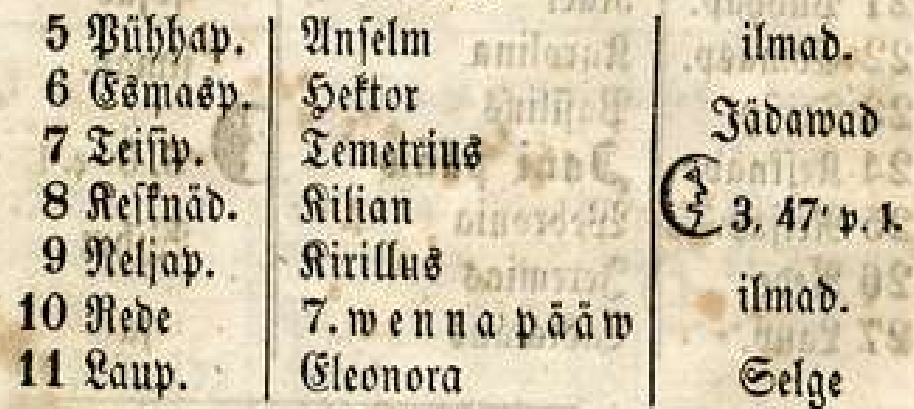 5 Pühhap. Anselm ilmad.
6 Esmasp. Hektor
Jädawad
7 Teisip. Temetrius
8 Kesknäd. Kilian 3. 47' p. l.
9 Neljap. Kirillus
ilmad.
10 Rede 7. wenna pääw
11 Laup. Eleonora Selge